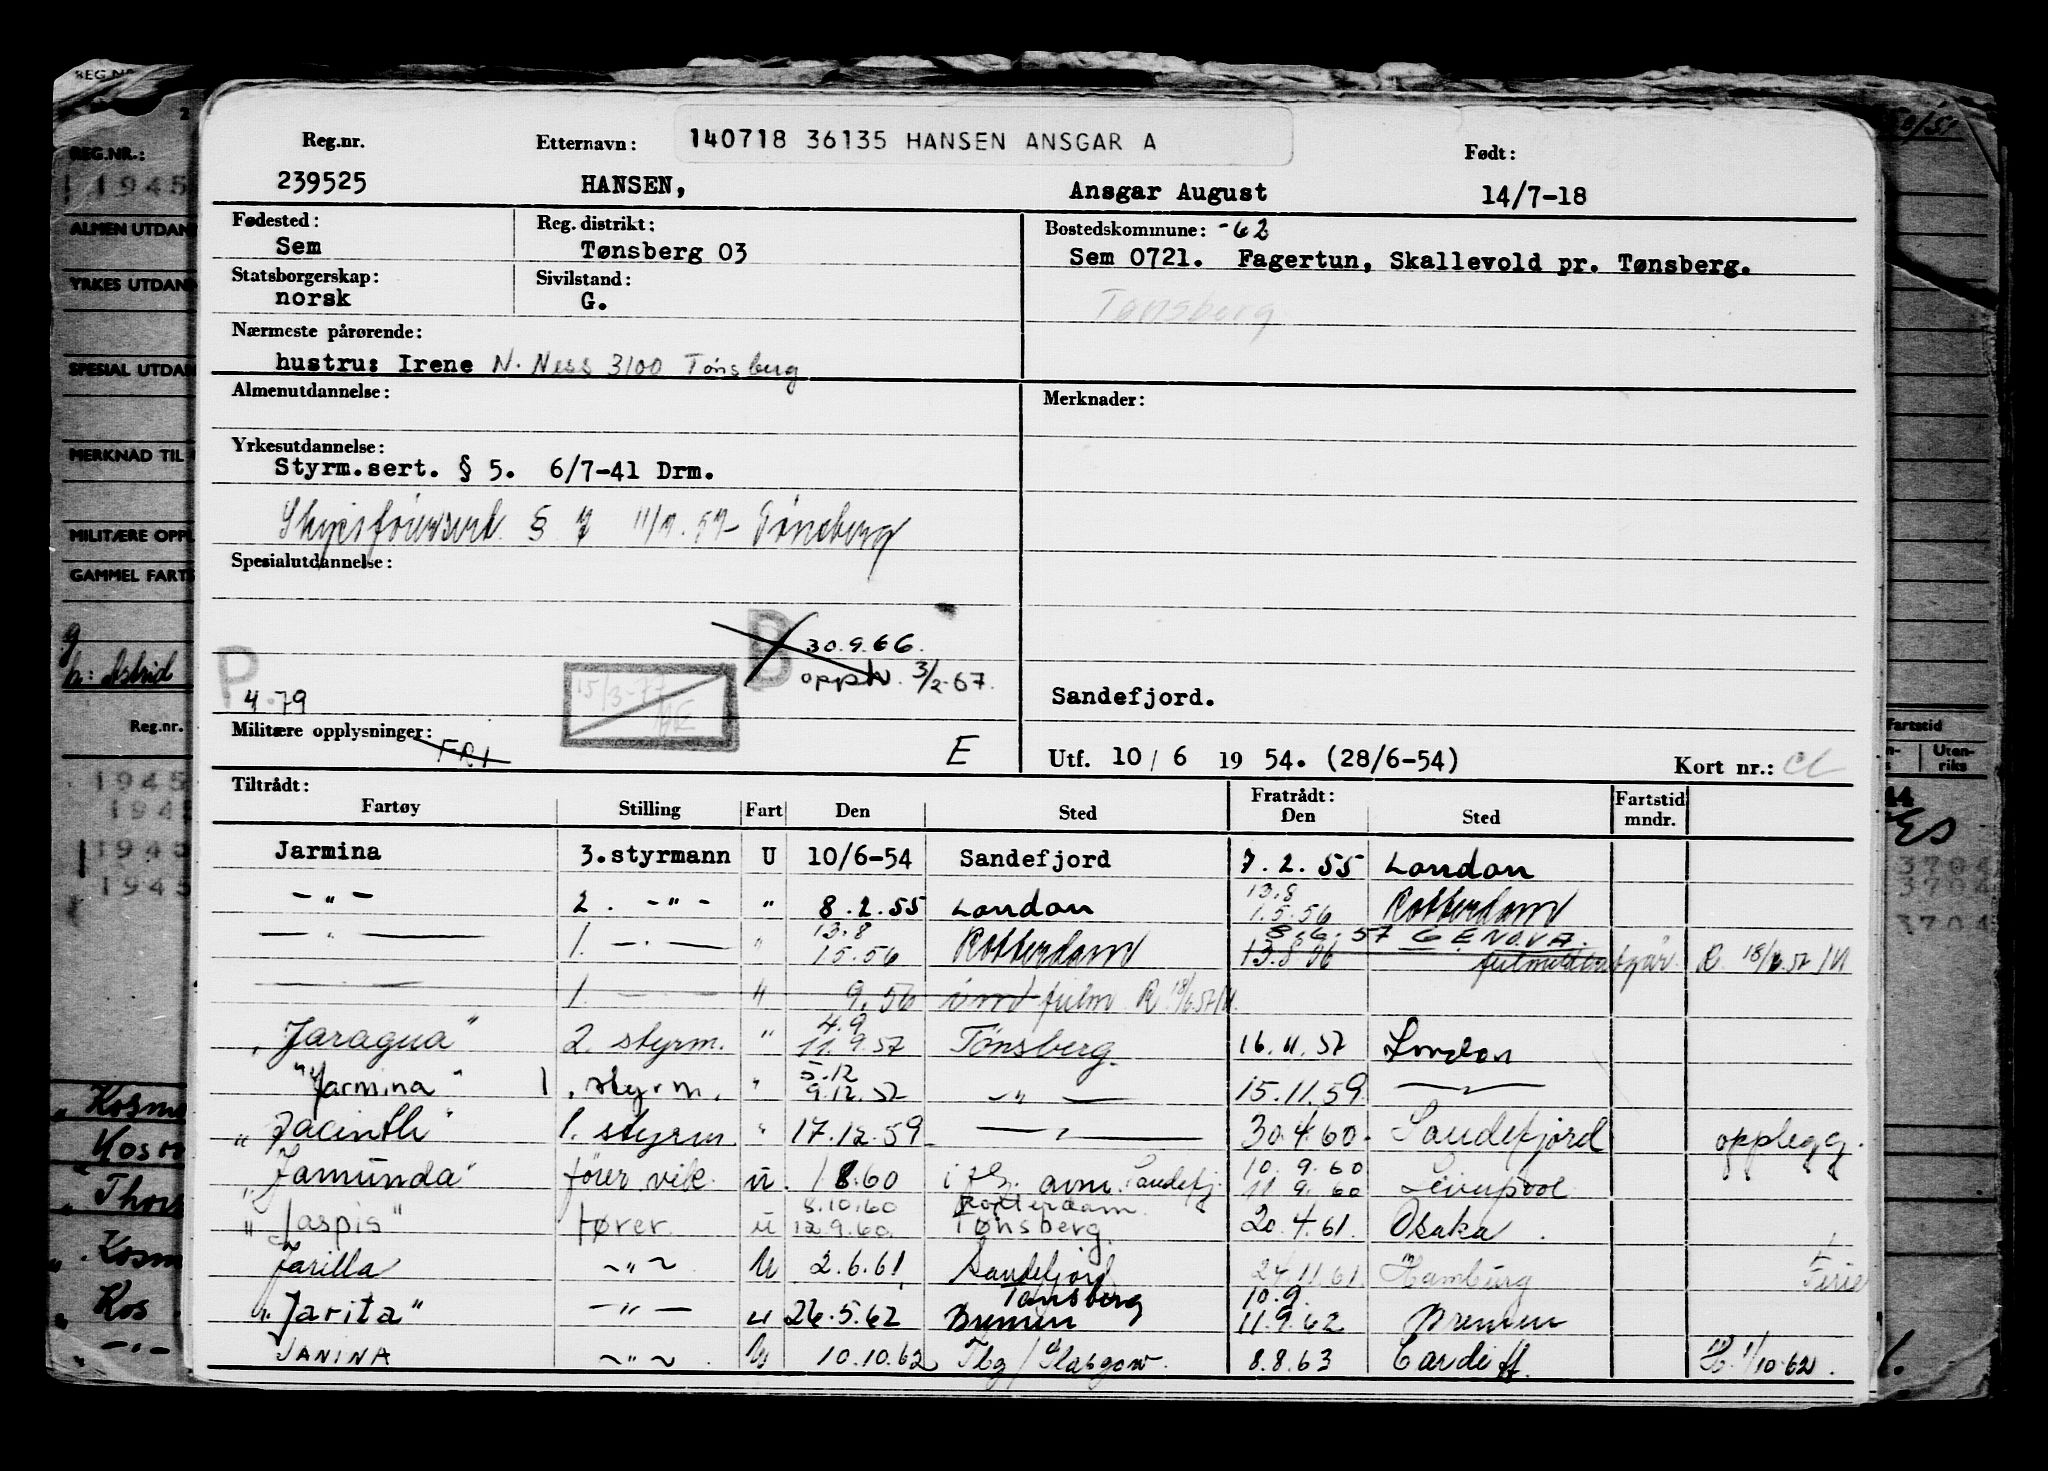 140718 36135 HANSEN ANSGAR A
Reg.nr. Etternavn: Født:
239525 HANSEN, Ansgar August 14/7-18
Fødested: Reg. distrikt: Bostedskommune: -62
Sem Tønsberg 03 Sem 0721. Fagertun, Skallevold pr. Tønsberg.
Statsborgerskap: Sivilstand:
norsk G. Tønsberg
Nærmeste pårørende:
hustru: Irene N. Ness 3100 Tønsberg
Almenutdannelse: Merknader:
Yrkesutdannelse:
Styrm.sert. § 5. 6/7-41 Drm.
Skipsførersert. § Tønsberg
Spesialutdannelse:
P B 30.9.66.
15/3-77 opphv. 3/2-67.
4.79 Sandefjord.
Militære opplysninger: FRI E Utf. 10/6 1954. (28/6-54) Kort nr.:
Tiltrådt: Fratrådt: Fartstid
Fartøy Stilling Fart Den Sted Den Sted mndr.
Jarmina 3.styrmann U 10/6-54 Sandefjord 7.2.55 London
-"- 2. -"- " 8.2.55 London 13.8 1.5.56 Rotterdam
-"- 1. -"- " 13.8 1.5.56 Rotterdam 8.6.57 GENOVA. 13.8.56 R. 18/6.57/
-"- 1. -"- " 9.56 R. 18/6.57/
"Jaragua" 2. styrm. " 4.9 11.9.57 Tønsberg. 16.11.57 London
"Jarmina" 1. styrm. " 5.12 9.12.57 -"- 15.11.59 -"-
"Jacinth" 1. styrm " 17.12.59 -"- 30.4.60 Sandefjord opplegg.
"Jamunda" fører vik. u. 1.8.60 Sandefj. 10.9.60 11.9.60 Liverpool
"Jaspis" fører. u 8.10.60 12.9.60 Rotterdam Tønsberg. 20.4.61 Osaka.
Jarilla -"- U 2.6.61 Sandefjord 24.11.61 Hamburg Ferie
"Jarita" -"- u 26.5.62 Tønsberg Bremen 10.9 11.9.62 Bremen
JANINA -"- U 10.10.62 Tbg/Glasgow. 8.8.63 Cardiff. H. 1/10.62.
REG.NR.:
1945
ALMEN UTDAN
YRKES UTDAN
SPESIAL UTDA
MERKNAD TIL
MILITÆRE OPPL
GAMMEL FARTS
h: Astrid
Reg.nr.
1945
1945
1945
1945
"Kosm
Kosm
"Thor
"Kosm
Kos
-"-
Fartstid
Uten-
riks
3704
3704
3704